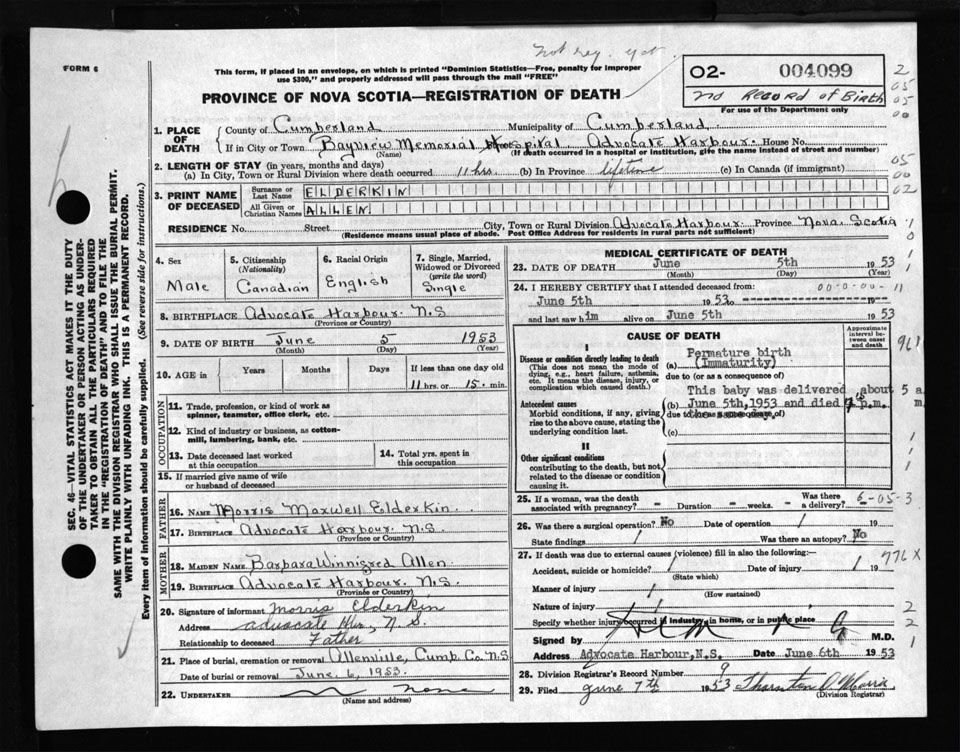 not reg. yet
FORM 6
This form, if placed in an envelope, on which is printed "Dominion Statistics—Free, penalty for improper
use $300," and properly addressed will pass through the mail "FREE"
PROVINCE OF NOVA SCOTIA—REGISTRATION OF DEATH
02- 004099
No Record of Birth
For use of the Department only
2
05
05
00
05
00
02
SEC. 46—VITAL STATISTICS ACT MAKES IT THE DUTY
OF THE UNDERTAKER OR PERSON ACTING AS UNDER-
TAKER TO OBTAIN ALL THE PARTICULARS REQUIRED
IN THE "REGISTRATION OF DEATH" AND TO FILE THE
SAME WITH THE DIVISION REGISTRAR WHO SHALL ISSUE THE BURIAL PERMIT.
WRITE PLAINLY WITH UNFADING INK. THIS IS A PERMANENT RECORD.
Every item of information should be carefully supplied. (See reverse side for instructions.)
1. PLACE OF DEATH { County of Cumberland Municipality of Cumberland
If in City or Town Bayview Memorial Hospital Advocate Harbour. House No.
(Name) (If death occurred in a hospital or institution, give the name instead of street and number)
2. LENGTH OF STAY (in years, months and days)
(a) In City, Town or Rural Division where death occurred 11 hrs. (b) In Province lifetime (c) In Canada (if immigrant)
3. PRINT NAME OF DECEASED { Surname or Last Name ELDERKIN
All Given or Christian Names ALLEN
RESIDENCE No. Street City, Town or Rural Division Advocate Harbour Province Nova Scotia
(Residence means usual place of abode. Post Office Address for residents in rural parts not sufficient)
4. Sex Male
5. Citizenship (Nationality) Canadian
6. Racial Origin English
7. Single, Married, Widowed or Divorced (write the word) Single
8. BIRTHPLACE Advocate Harbour. N.S
(Province or Country)
9. DATE OF BIRTH June 5 1953
(Month) (Day) (Year)
10. AGE IN Years Months Days If less than one day old
11 hrs. or 15. min.
OCCUPATION
11. Trade, profession, or kind of work as
spinner, teamster, office clerk, etc.
12. Kind of industry or business, as cotton-
mill, lumbering, bank, etc.
13. Date deceased last worked
at this occupation
14. Total yrs. spent in
this occupation
15. If married give name of wife
or husband of deceased
FATHER
16. NAME Morris Maxwell Elderkin
17. BIRTHPLACE Advocate Harbour N.S.
(Province or Country)
MOTHER
18. MAIDEN NAME Barbara Winnigred Allen
19. BIRTHPLACE Advocate Harbour. N.S.
(Province or Country)
20. Signature of informant Morris Elderkin
Address Advocate Hbr, N.S.
Relationship to deceased Father
21. Place of burial, cremation or removal Allenville, Cumb. Co. N.S
Date of burial or removal June 6, 1953.
22. UNDERTAKER none
(Name and address)
MEDICAL CERTIFICATE OF DEATH
23. DATE OF DEATH June 5th 1953
(Month) (Day) (Year)
24. I HEREBY CERTIFY that I attended deceased from: 00-0-00-11
June 5th 1953 to
and last saw him alive on June 5th 1953
CAUSE OF DEATH
Approximate interval between onset and death
I
Disease or condition directly leading to death
(This does not mean the mode of
dying, e.g., heart failure, asthenia,
etc. It means the disease, injury, or
complication which caused death.)
Permature birth
(a) (Immaturity)
due to (or as a consequence of)
961
Antecedent causes
Morbid conditions, if any, giving
rise to the above cause, stating the
underlying condition last.
This baby was delivered about 5 a m
(b) June 5th, 1953 and died 7 p.m.
due to (or as a consequence of)
(c)
II
Other significant conditions
contributing to the death, but not
related to the disease or condition
causing it.
25. If a woman, was the death
associated with pregnancy? - Duration - weeks. - Was there a delivery? - 6-05-3
26. Was there a surgical operation? No Date of operation / 19
State findings / Was there an autopsy? No
27. If death was due to external causes (violence) fill in also the following:—
776 X
Accident, suicide or homicide? / Date of injury / 19
(State which)
Manner of injury /
(How sustained)
Nature of injury /
Specify whether injury occurred in industry, in home, or in public place
Signed by M.D.
Address Advocate Harbour, N.S. Date June 6th 1953
28. Division Registrar's Record Number 9
29. Filed June 7th 1953
(Division Registrar)